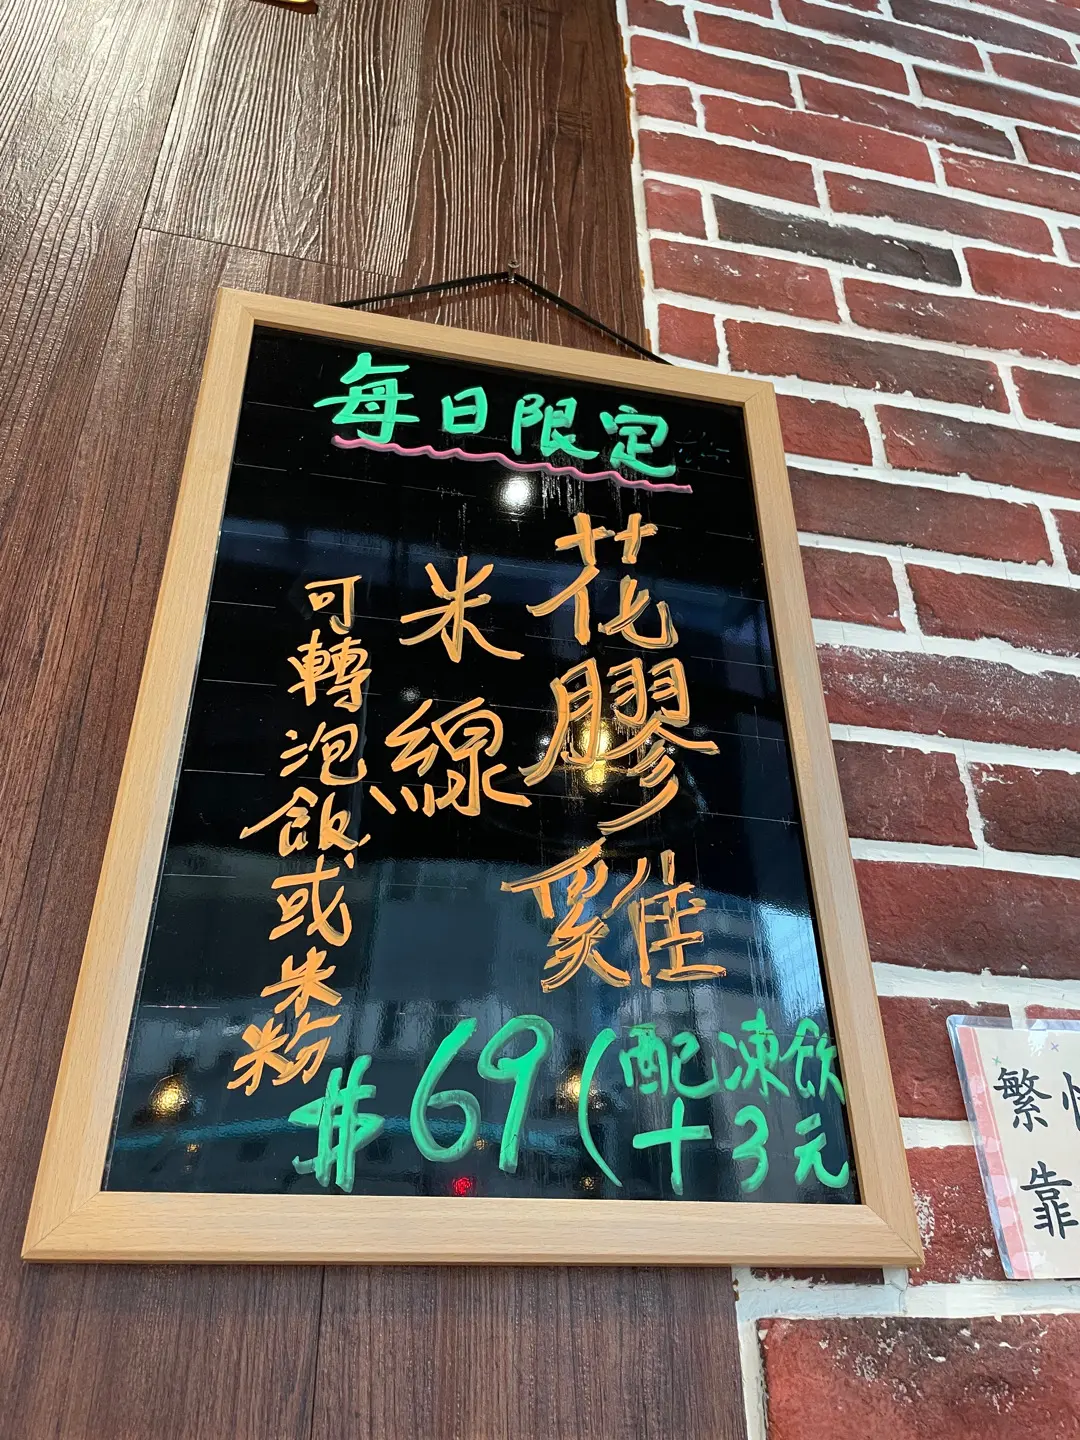 每日限定
花膠雞
米線
可轉泡飯或米粉
$69(配凍飲
+3元
繁忙
靠